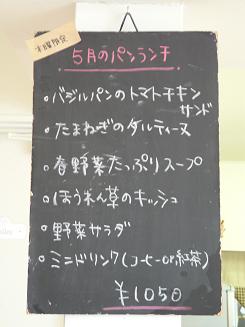 木曜限定
5月のパンランチ
バジルパンのトマトチキン
サンド
たまねぎのタルティーヌ
春野菜たっぷりスープ
ほうれん草のキッシュ
野菜サラダ
ミニドリンク(コーヒーor紅茶)
¥1050